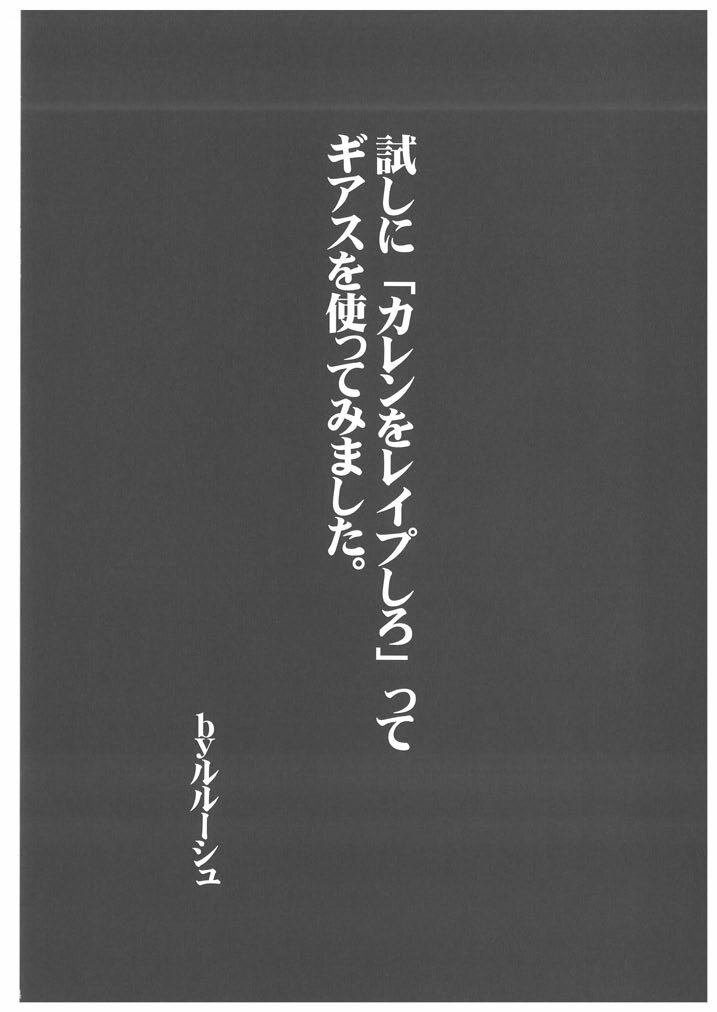 試しに「カレンをレイプしろ」って
ギアスを使ってみました。
byルルーシュ